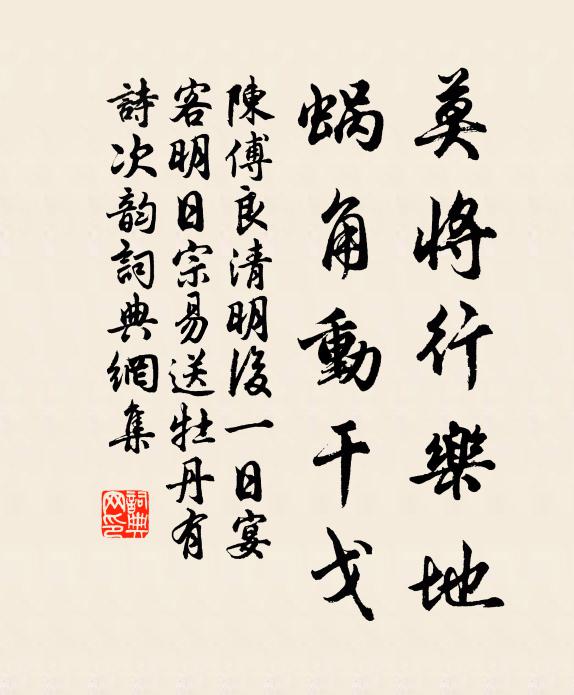 莫將行樂地
蝸角動干戈
陳傅良清明後一日宴
客明日宗易送牡丹有
詩次韵詞典網集
詞典
网印